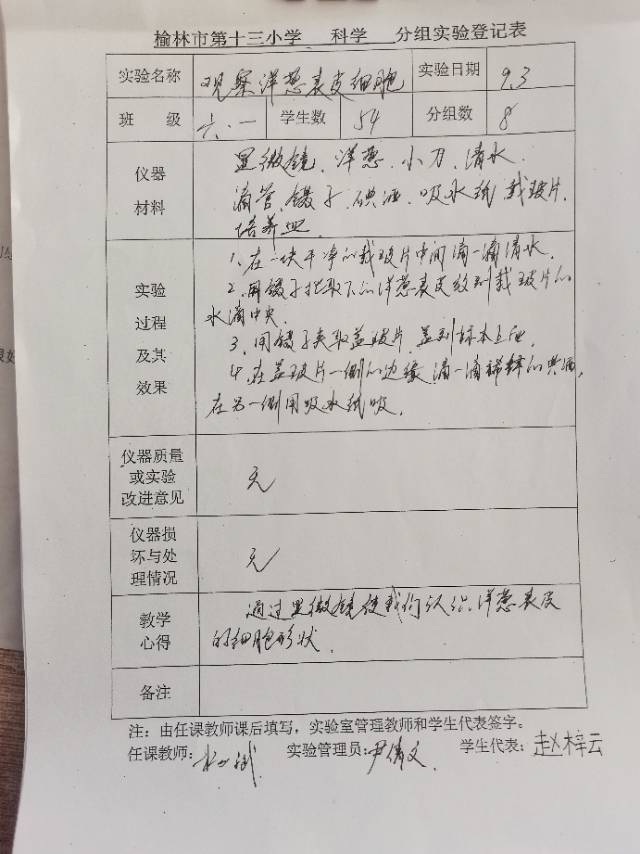 榆林市第十三小学 科学 分组实验登记表
实验名称 观察洋葱表皮细胞 实验日期 9.3
班 级 六.一 学生数 54 分组数 8
仪器材料
显微镜、洋葱、小刀、清水、
滴管、镊子、碘酒、吸水纸、载玻片、
培养皿
实验过程及其效果
1、在一块干净的载玻片中间滴一滴清水。
2、用镊子把取下的洋葱表皮放到载玻片的
水滴中央。
3、用镊子夹取盖玻片,盖到标本上面
4、在盖玻片一侧的边缘滴一滴稀释的碘酒,
在另一侧用吸水纸吸。
仪器质量或实验改进意见 无
仪器损坏与处理情况 无
教学心得
通过显微镜使我们认识洋葱表皮
的细胞形状。
备注
注:由任课教师课后填写,实验室管理教师和学生代表签字。
任课教师: 实验管理员:尹倩文 学生代表:赵梓云